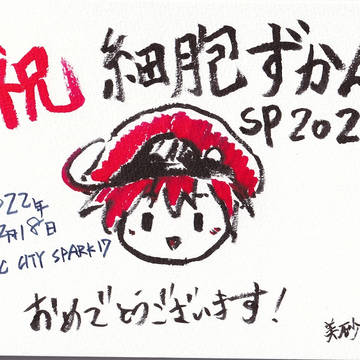 祝 細胞ずかん
SP202
022年
2月18日
C CITY SPARK17
おめでとうございます!
美砂